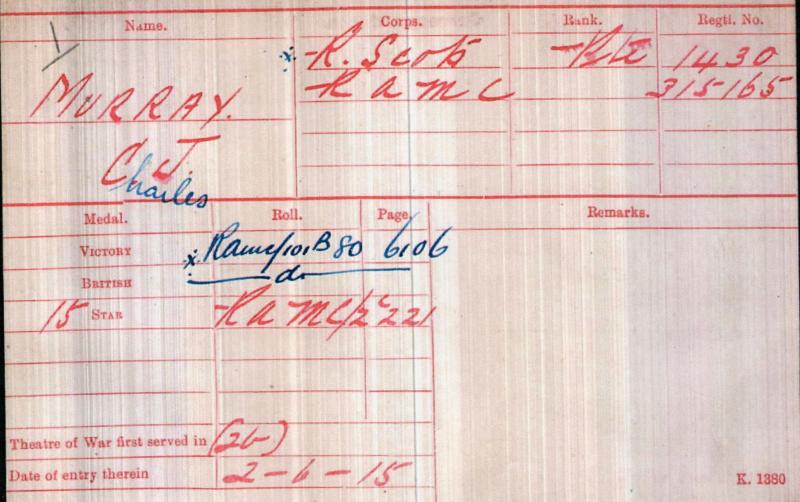 Name. Corps. Rank. Regtl. No.
x R. Scots Pte 1430
MURRAY. R A M C 315165
C J.
Charles
Medal. Roll. Page. Remarks.
VICTORY x RAMC/101B80 6106
BRITISH do
15 STAR R A M C/2C 221
Theatre of War first served in (2b)
Date of entry therein 2-6-15
K. 1380